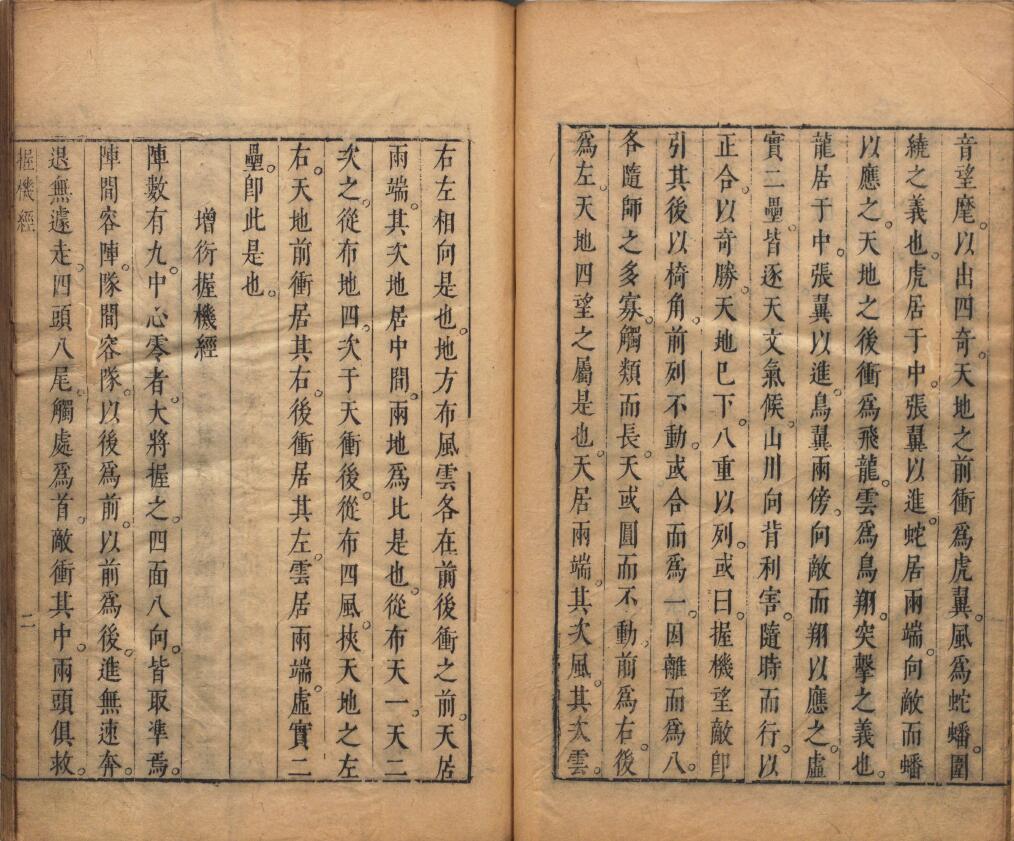 音望麾。以出四奇。天地之前衝爲虎翼。風爲蛇蟠。圍
繞之義也。虎居于中。張翼以進。蛇居兩端。向敵而蟠
以應之。天地之後衝爲飛龍。雲爲鳥翔。突擊之義也。
龍居于中。張翼以進。鳥翼兩傍。向敵而翔以應之。虛
實二壘。皆逐天文氣候。山川向背利害。隨時而行。以
正合。以奇勝。天地巳下。八重以列。或曰。握機望敵卽
引其後以椅角。前列不動。或合而爲一。因離而爲八。
各隨師之多寡。觸類而長。天或圓而不動。前爲右。後
爲左。天地四望之屬是也。天居兩端。其次風。其次雲。
右左相向是也。地方布風雲各在前後衝之前。天居
兩端。其次地居中間。兩地爲比是也。從布天一。天二
次之。從布地四。次于天衝後。從布四風。挾天地之左
右。天地前衝居其右。後衝居其左。雲居兩端。虛實二
壘。卽此是也。
增衍握機經
陣數有九。中心零者。大將握之。四面八向。皆取準焉。
陣間容陣。隊間容隊。以後爲前。以前爲後。進無速奔。
退無遽走。四頭八尾。觸處爲首。敵衝其中。兩頭俱救。
握機經
二